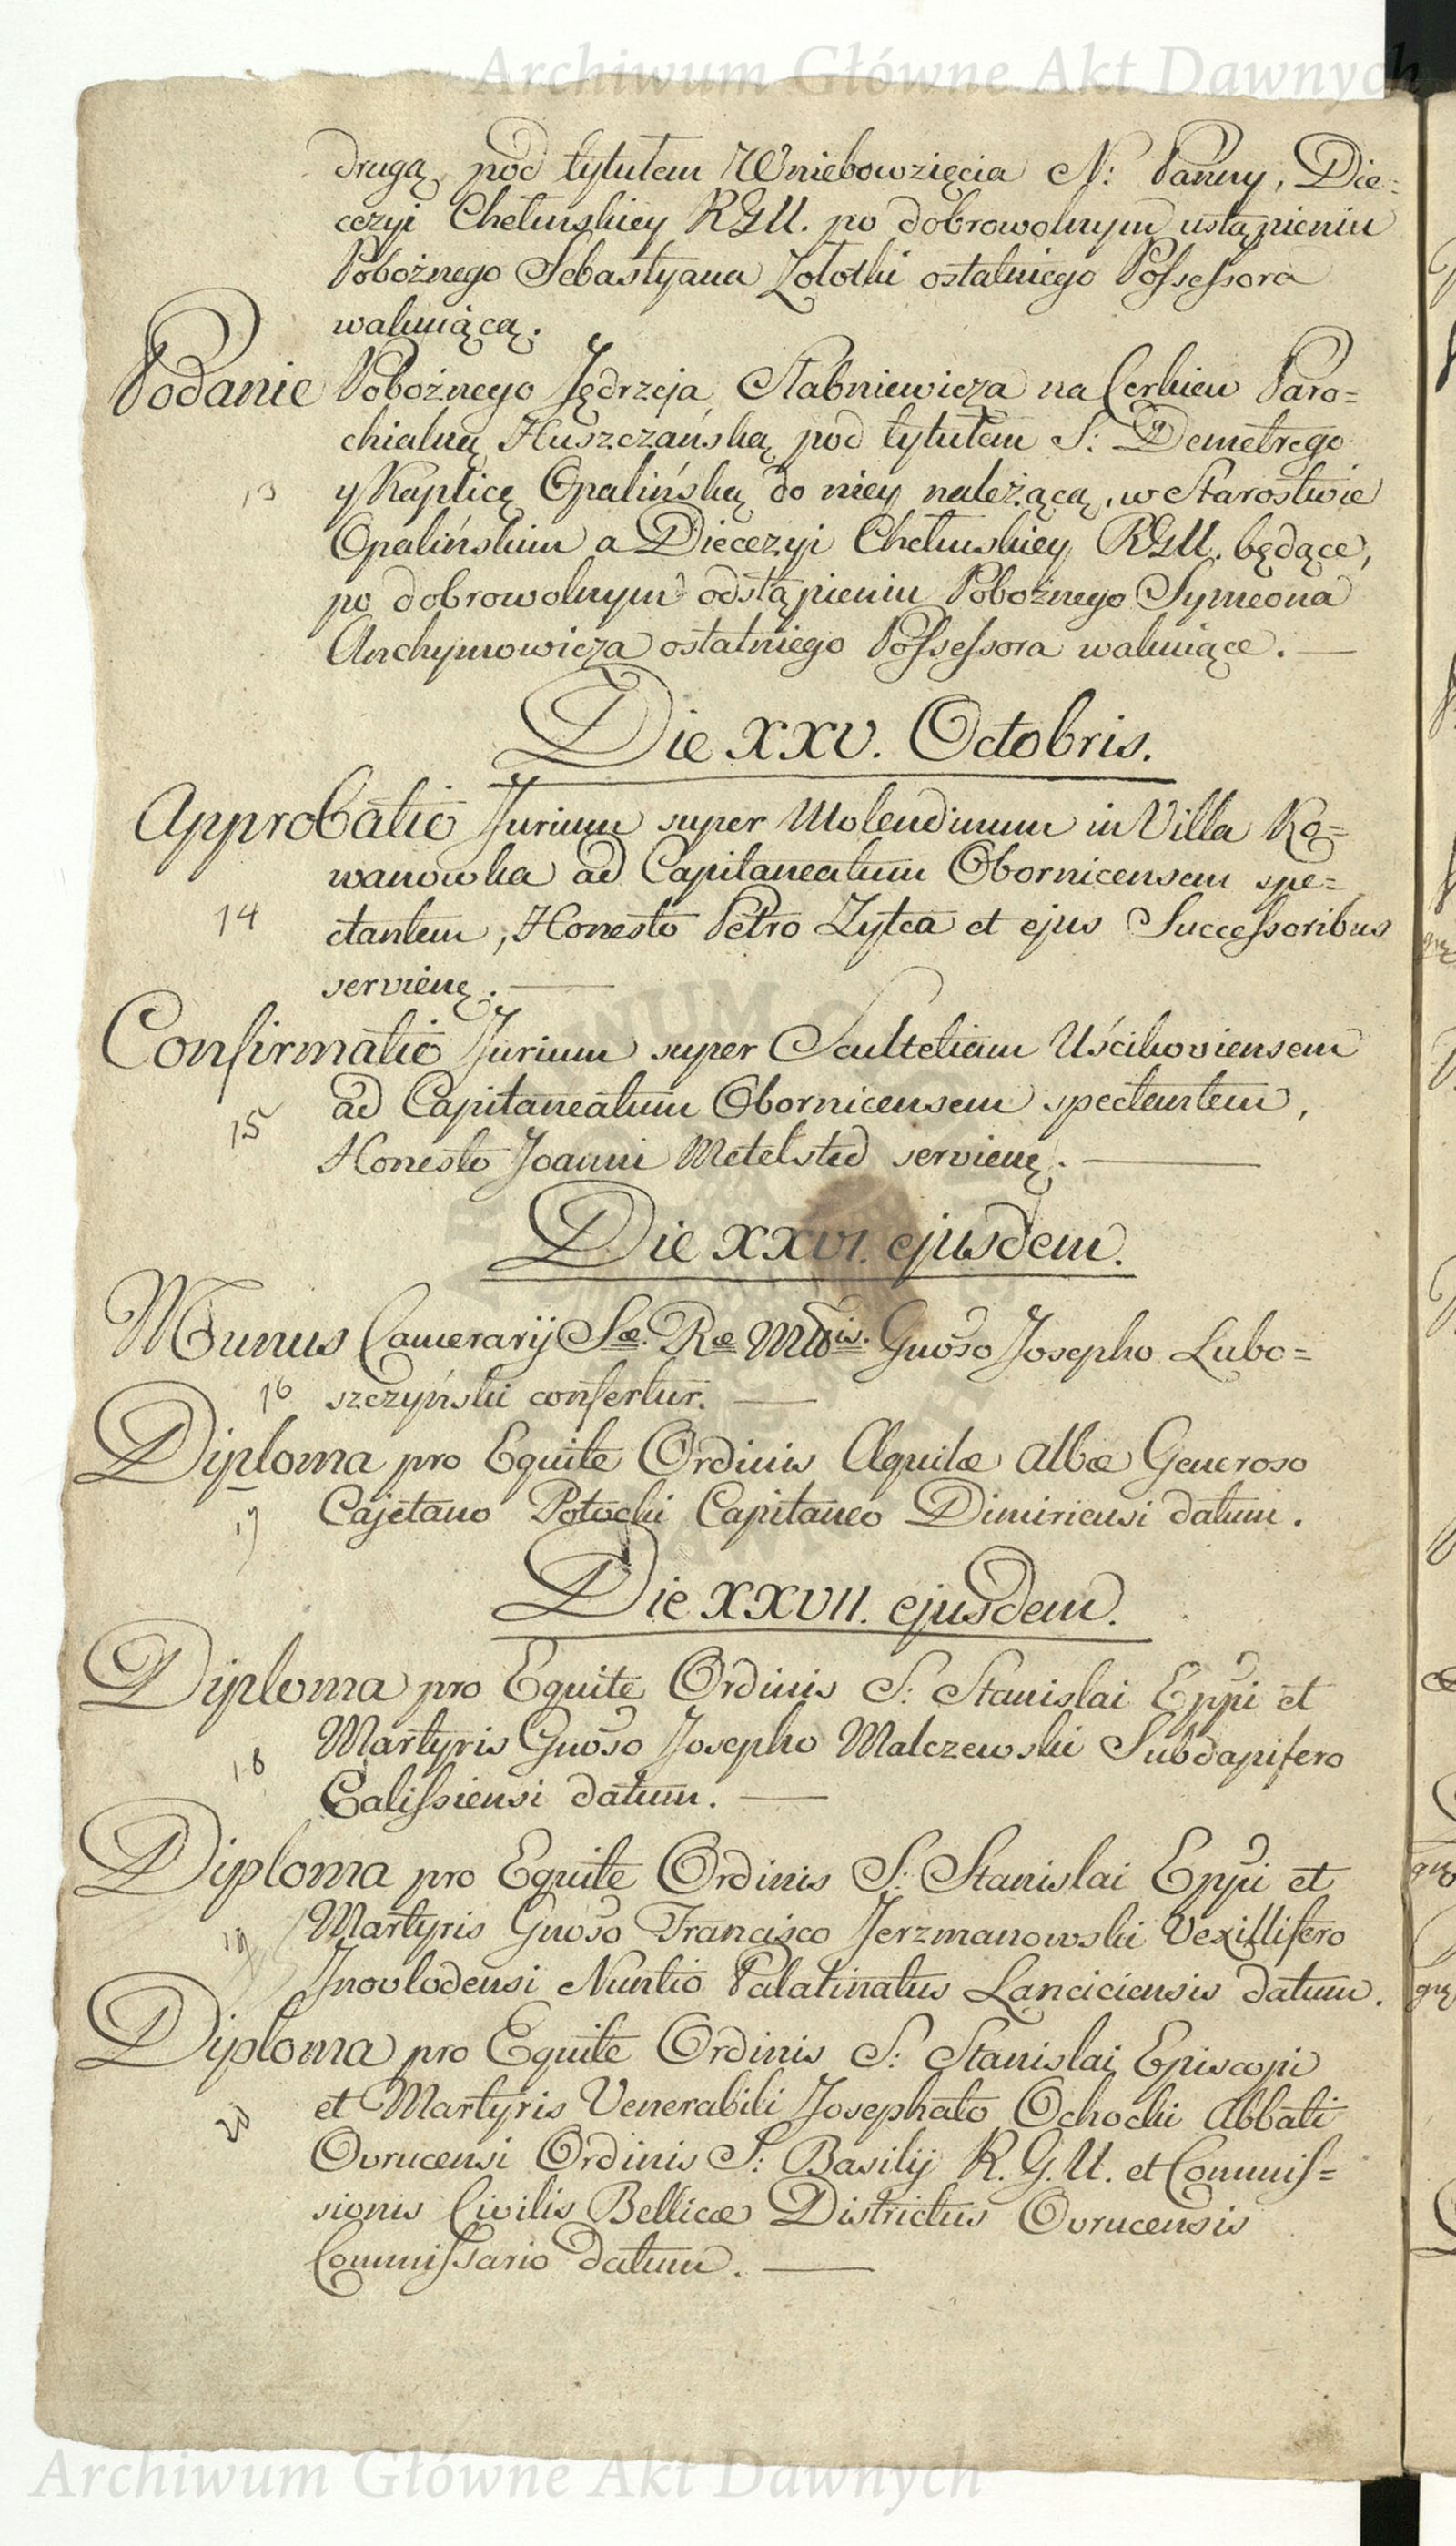 Archiwum Główne Akt Dawnych
drugą, pod tytułem Wniebowzięcia N: Panny, Die=
cezyi Chełmskiey RGU. po dobrowolnym ustąpieniu
Pobożnego Sebastyana Zołotki ostatniego Possessora
wakuiącą.
Podanie Pobożnego Jędrzeja Słabniewicza na Cerkiew Paro=
chialną Huszczańską pod tytułem S: Demetrego
13 y Kaplicę Opalińską do niey należącą, w Starostwie
Opalińskim a Diecezyi Chełmskiey RGU. będące,
po dobrowolnym odstąpieniu Pobożnego Symeona
Anchymowicza ostatniego Possessora wakuiące. —
Die XXV. Octobris.
Approbatio Jurium super Molendinum in Villa Ro=
wanowka ad Capitaneatum Obornicensem spe=
14 ctantem, Honesto Petro Zytca et ejus Successoribus
servienę. —
Confirmatio Jurium super Scultetiam Uścikoviensem
15 ad Capitaneatum Obornicensem spectantem,
Honesto Joanni Metelsted servienę. —
Die XXVI. ejusdem.
Munus Camerarij Sæ. Ræ Mttis. Gnoso Josepho Lubo=
16 szczyński confertur. —
Diploma pro Equite Ordinis Aquilæ Albæ Generoso
17 Cajetano Potocki Capitaneo Dimiriensi datum.
Die XXVII. ejusdem.
Diploma pro Equite Ordinis S: Stanislai Eppi et
18 Martyris Gnoso Josepho Malczewski Subdapifero
Calissiensi datum. —
Diploma pro Equite Ordinis S: Stanislai Eppi et
19 Martyris Gnoso Francisco Jerzmanowski Vexillifero
Inovlodensi Nuntio Palatinatus Lanciciensis datum.
Diploma pro Equite Ordinis S: Stanislai Episcopi
20 et Martyris Venerabili Josephato Ochocki Abbati
Ovrucensi Ordinis S: Basilij R. G. U. et Commis=
sionis Civilis Bellicæ Districtus Ovrucensis
Commissario datum. —
Archiwum Główne Akt Dawnych